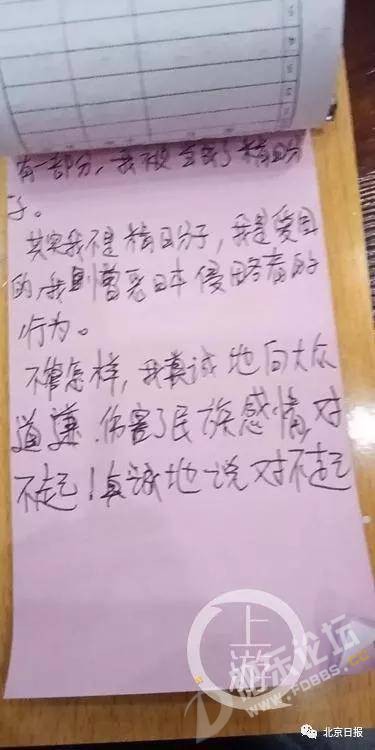 有一部分,我被当成了精日分
子。
其实我不是精日分子,我是爱国
的,我憎恶日本侵略者的
行为。
不管怎样,我真诚地向大众
道歉.伤害了民族感情,对
不起!真诚地说对不起
上游
游乐论坛
WWW.FDBBS.CC
北京日报